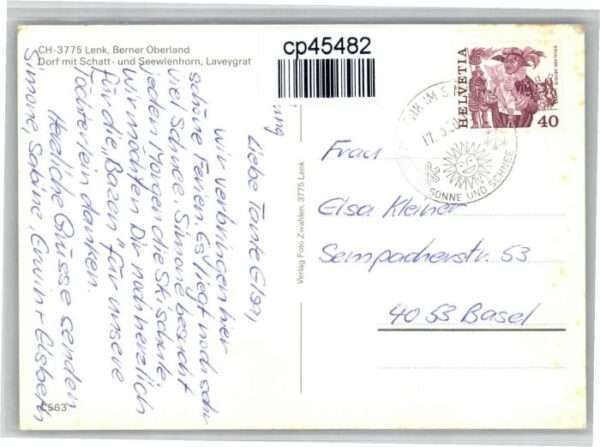 CH-3775 Lenk, Berner Oberland
Dorf mit Schatt- und Seewlenhorn, Laveygrat
cp45482
Liebe Tante Elsa,
wir verbringen hier
schöne Ferien. Es liegt noch sehr
viel Schnee. Simone besucht
jeden Morgen die Skischule.
Wir möchten Dir noch herzlich
für die "Bazen" für unsere
Töchterlein danken.
Herzliche Grüsse senden
Simone, Sabine, Erwin + Elsbeth
C563
Verlag Foto Zwahlen, 3775 Lenk
HELVETIA
40
IM S
17.3.
SONNE UND SCHNEE
Frau
Elsa Kleiner
Sempacherstr. 53
4053 Basel